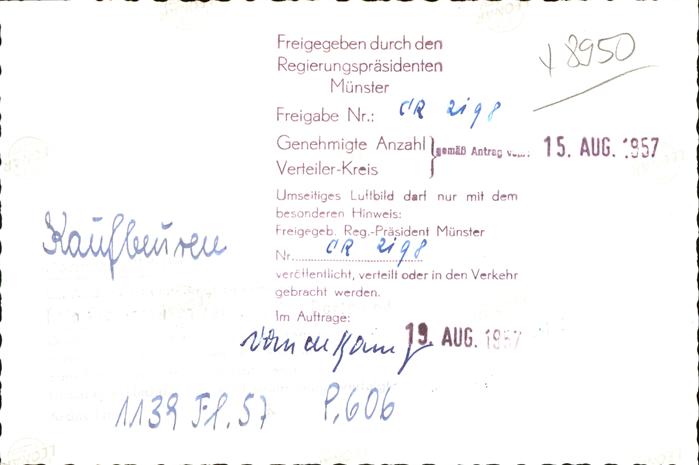 Freigegeben durch den
Regierungspräsidenten
Münster
+ 8950
Freigabe Nr.: CR 2198
Genehmigte Anzahl
Verteiler-Kreis
gemäß Antrag vom: 15. AUG. 1957
Umseitiges Luftbild darf nur mit dem
besonderen Hinweis:
Freigegeb. Reg.-Präsident Münster
Nr. CR 2198
veröffentlicht, verteilt oder in den Verkehr
gebracht werden.
Kaufbeuren
Im Auftrage:
19. AUG. 1957
1139 Fl. 57 P. 606